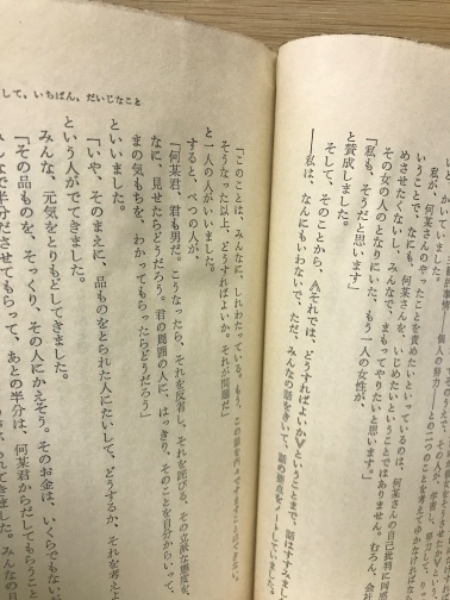 いと、かいていました。
私が、何某さんのやったことを責めたいといっているのは、何某さんの自己批判に同感
いうことで、なにも、何某さんを、いじめたいということではありません。むろん、会社
めさせたくないし、みんなで、まもってやりたいと思います。」
その女の人のとなりにいた、もう一人の女性が、
「私も、そうだと思います」
と賛成しました。
そして、そのことから、≪それでは、どうすればよいか≫ということまで、話はすすみまし
――私は、なんにもいわないで、ただ、みんなの話をきいて、話の要点をノートしていました。
して、いちばん、だいじなこと
「このことは、みんなに、しれわたっている。もう、この話を内々で
そうなった以上、どうすればよいか。それが問題だ」
と一人の人がいいました。
すると、べつの人が、
「何某君、君も男だ。こうなったら、それを反省し、それを詫びる、その立派な態度を、
なに、見せたらどうだろう。君の周囲の人に、はっきり、そのことを自分からいって、
まの気もちを、わかってもらったらどうだろう」
といいました。
「いや、そのまえに、品ものをとられた人にたいして、どうするか、それを考えよ
という人がでてきました。
みんな、元気をとりもどしてきました。
「その品ものを、そっくり、その人にかえそう。そのお金は、いくらでもない
みんなで半分ださせてもらって、あとの半分は、何某君からだしてもらうこと